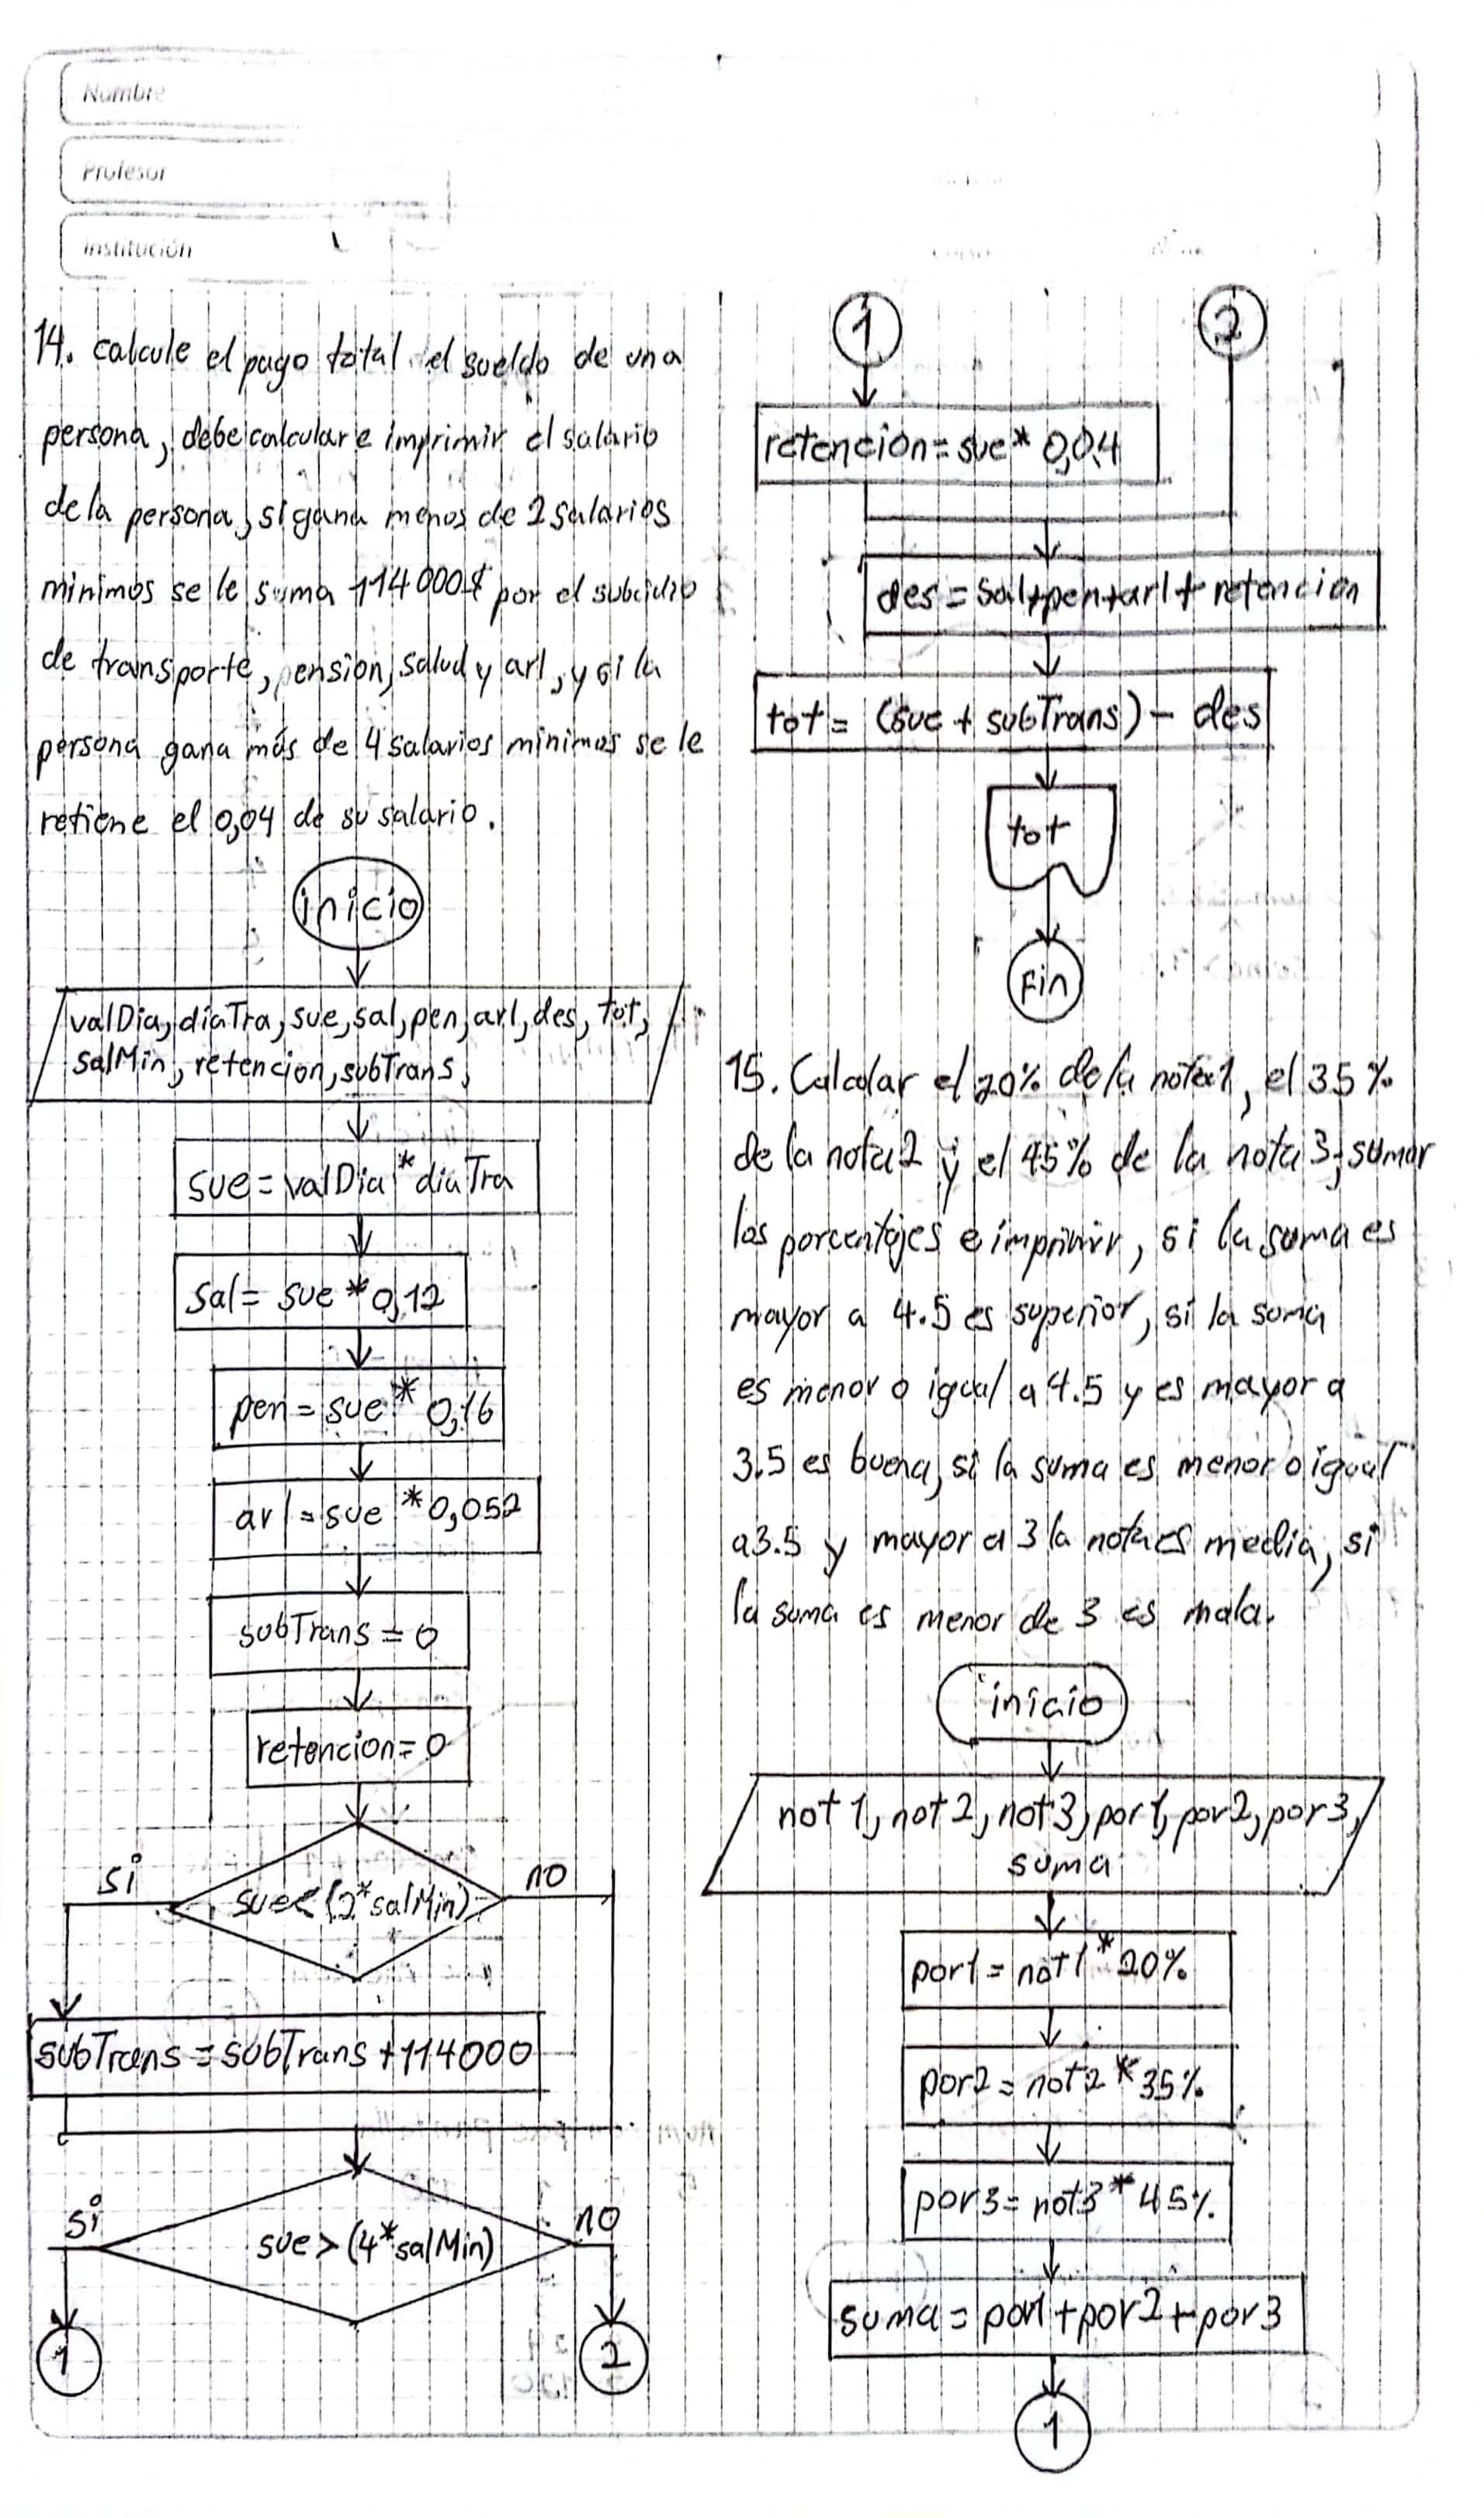 Nombre
Profesor
Institución
14. calcule el pago total el sueldo de una
persona, debe calcular e imprimir el salario
de la persona, si gana menos de 2 salarios
minimos se le suma 114000$ por el subcidio
de transporte, pension, salud y arl, y si la
persona gana más de 4 salarios minimos se le
retiene el 0,04 de su salario.
inicio
valDia, diaTra, sue, sal, pen, arl, des, tot,
salMin, retencion, subTrans,
sue = valDia * diaTra
sal = sue * 0,12
pen = sue * 0,16
arl = sue * 0,052
subTrans = 0
retencion = 0
si
sue < (2*salMin)
no
subTrans = subTrans + 114000
si
sue > (4*salMin)
no
1
2
1
2
retencion = sue * 0,04
des = sal+pen+arl+retencion
tot = (sue + subTrans) - des
tot
Fin
15. Calcular el 20% de la nota1, el 35%
de la nota2 y el 45% de la nota 3, sumar
los porcentajes e imprimir, si la suma es
mayor a 4.5 es superior, si la suma
es menor o igual a 4.5 y es mayor a
3.5 es buena, si la suma es menor o igual
a 3.5 y mayor a 3 la nota es media, si
la suma es menor de 3 es mala.
inicio
not1, not2, not3, por1, por2, por3,
suma
por1 = not1 * 20%
por2 = not2 * 35%
por3 = not3 * 45%
suma = por1 + por2 + por3
1